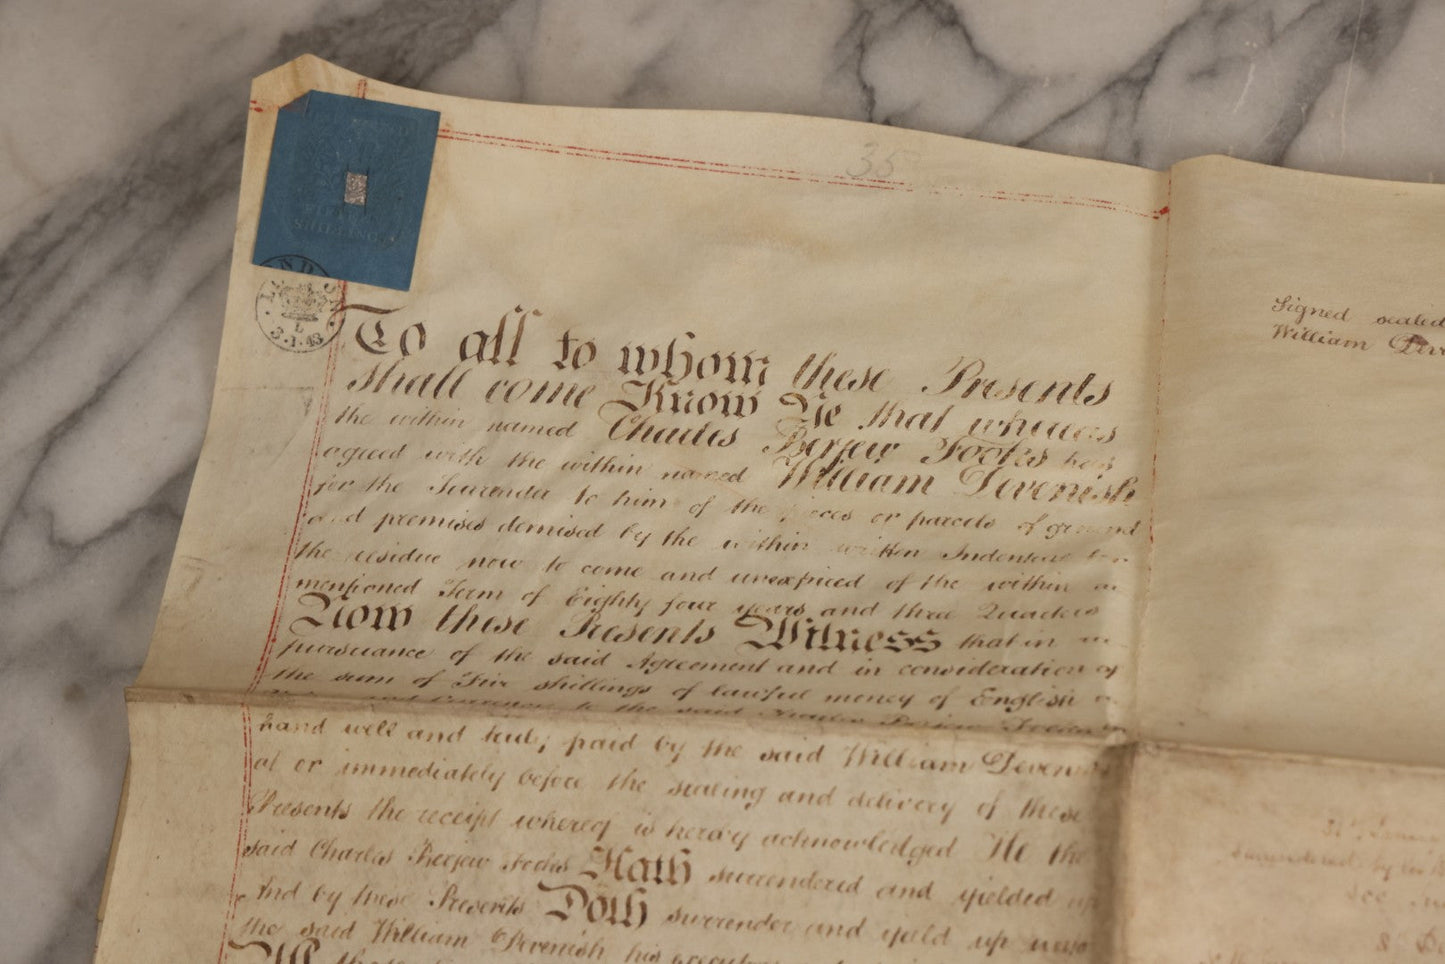 35
SHILLINGS
LONDON
L
3.1.43
To all to whom these Presents
shall come Know Ye that whereas
the within named Charles Berjew Fooks has
agreed with the within named William Devenish
for the Surrender to him of the pieces or parcels of ground
and premises demised by the within written Indenture for
the residue now to come and unexpired of the within
mentioned Term of Eighty four years and three Quarters
Now these Presents Witness that in
pursuance of the said Agreement and in consideration of
the sum of Five shillings of lawful money of English
to the said Charles Berjew Fooks in
hand well and truly paid by the said William Devenish
at or immediately before the sealing and delivery of these
Presents the receipt whereof is hereby acknowledged He the
said Charles Berjew Fooks Hath surrendered and yielded up
And by these Presents Doth surrender and yield up unto
the said William Devenish his executors
All
Signed sealed
William
surrendered by